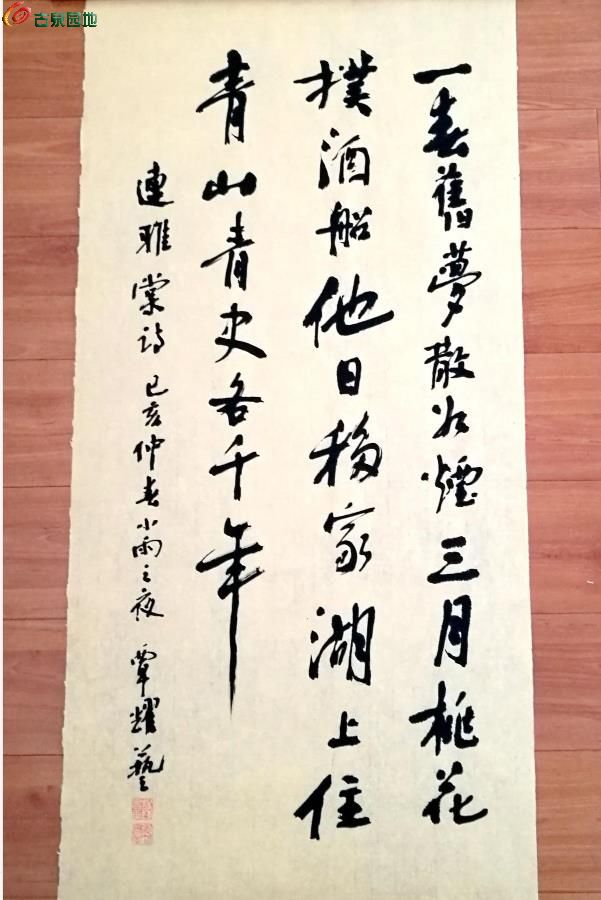 古泉园地
一春舊夢散如煙三月桃花
撲酒船他日移家湖上住
青山青史各千年
連雅棠詩己亥仲春小雨之夜覃耀藝